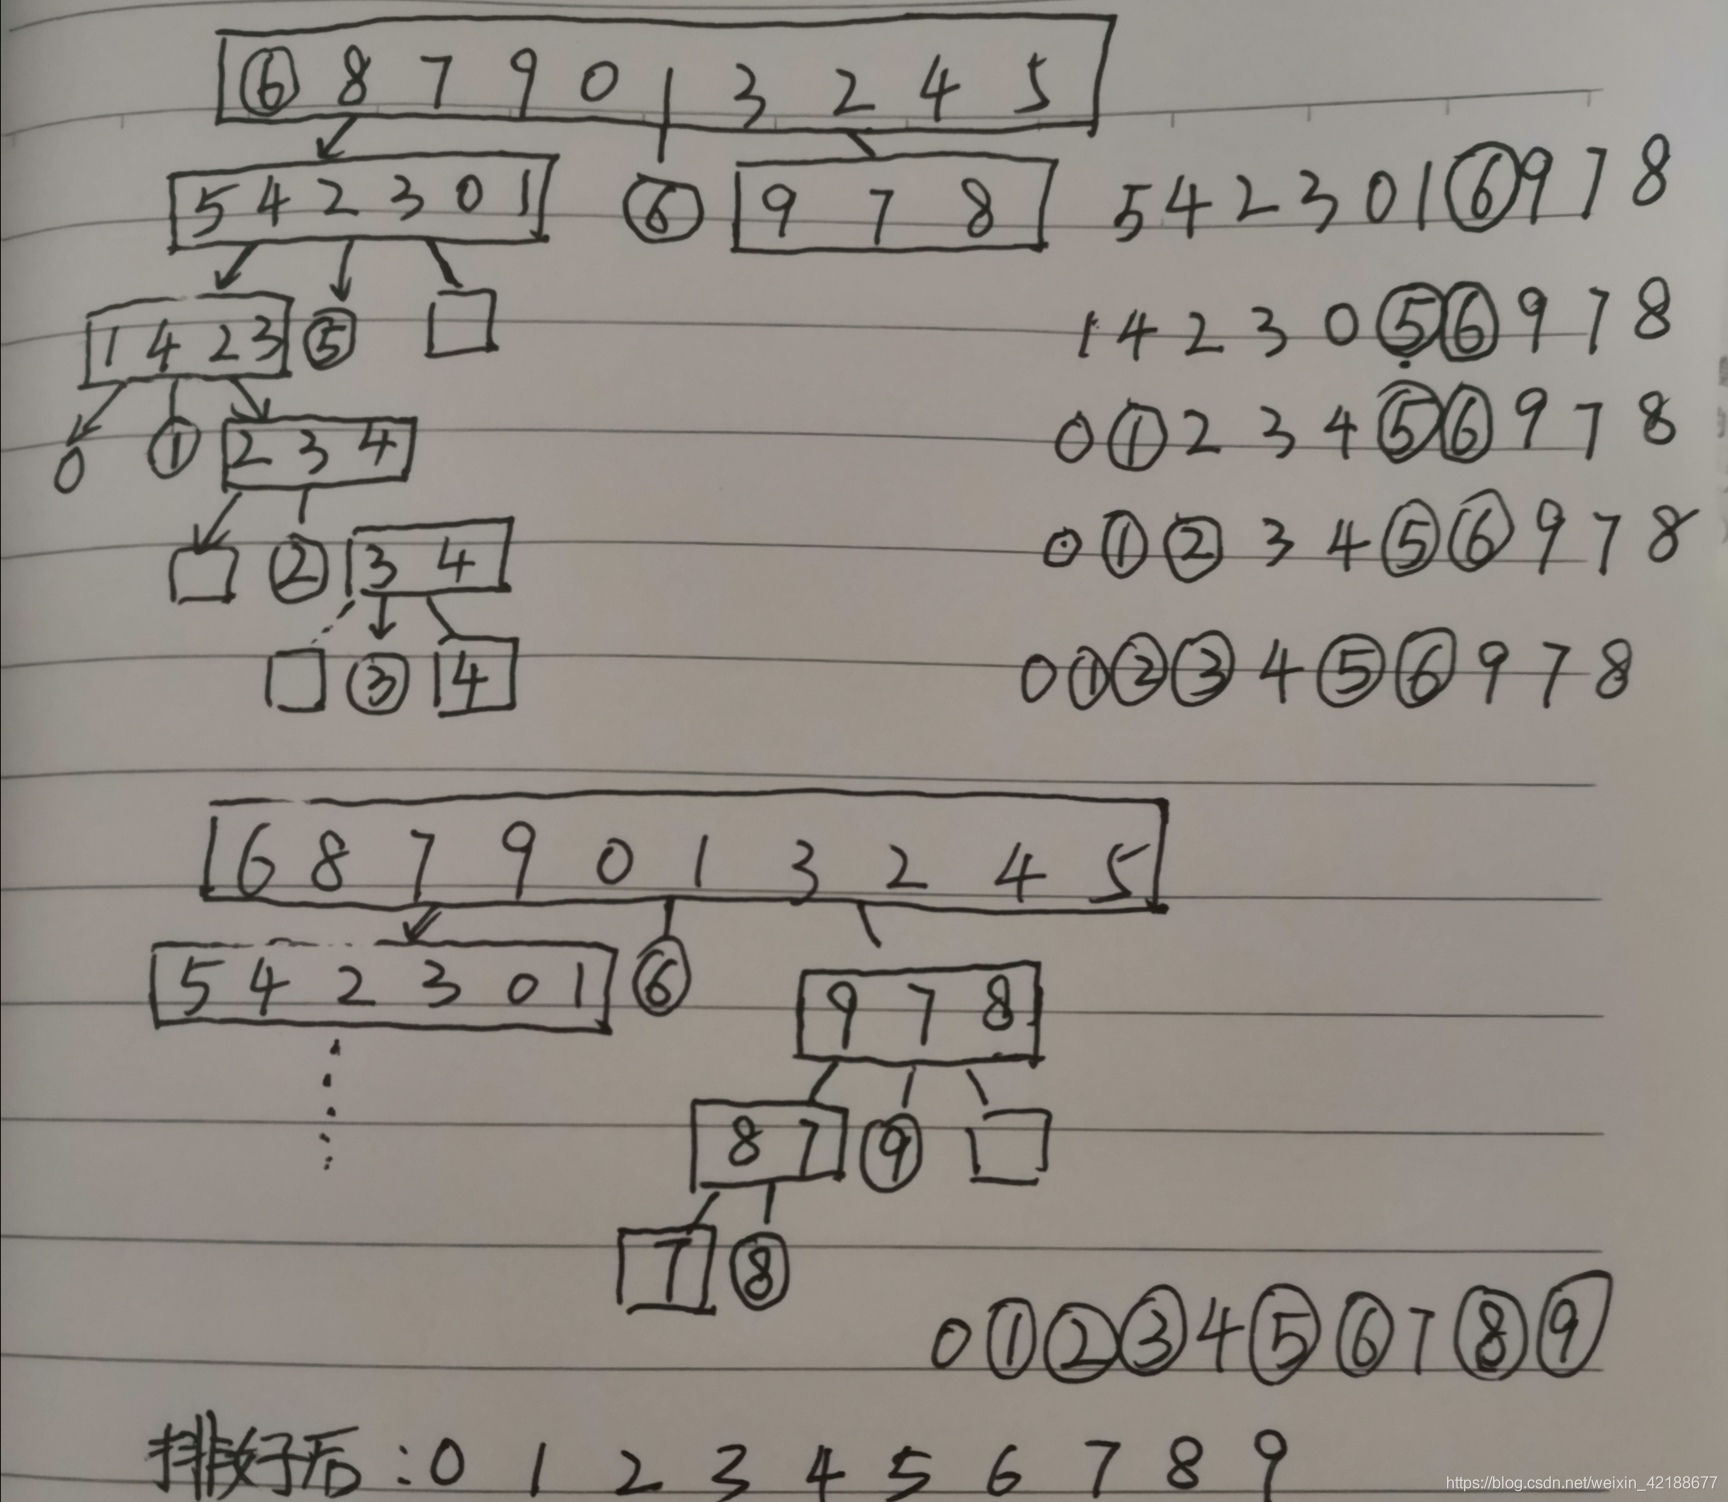 6 8 7 9 0 1 3 2 4 5
5 4 2 3 0 1 6 9 7 8
5 4 2 3 0 1 6 9 7 8
1 4 2 3 5
1 4 2 3 0 5 6 9 7 8
0 1 2 3 4
0 1 2 3 4 5 6 9 7 8
2 3 4
0 1 2 3 4 5 6 9 7 8
3 4
0 1 2 3 4 5 6 9 7 8
6 8 7 9 0 1 3 2 4 5
5 4 2 3 0 1 6 9 7 8
8 7 9
7 8
0 1 2 3 4 5 6 7 8 9
排好后:0 1 2 3 4 5 6 7 8 9
https://blog.csdn.net/weixin_42188677